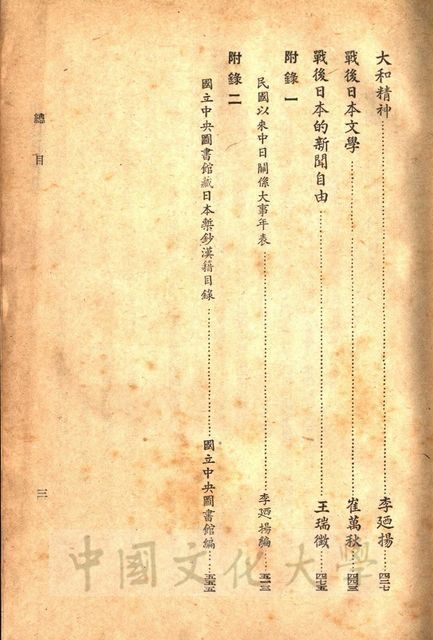 大和精神……李廼揚……四二七
戰後日本文學……崔萬秋……四四三
戰後日本的新聞自由……王瑞徵……四七五
附錄一
民國以來中日關係大事年表……李廼揚編……五一三
附錄二
國立中央圖書館藏日本槧鈔漢籍目錄……國立中央圖書館編……五五五
總目
三
中國文化大學